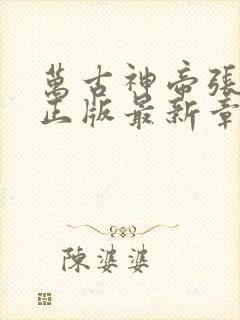 萬古神帝張
正版最新章
陳婆婆